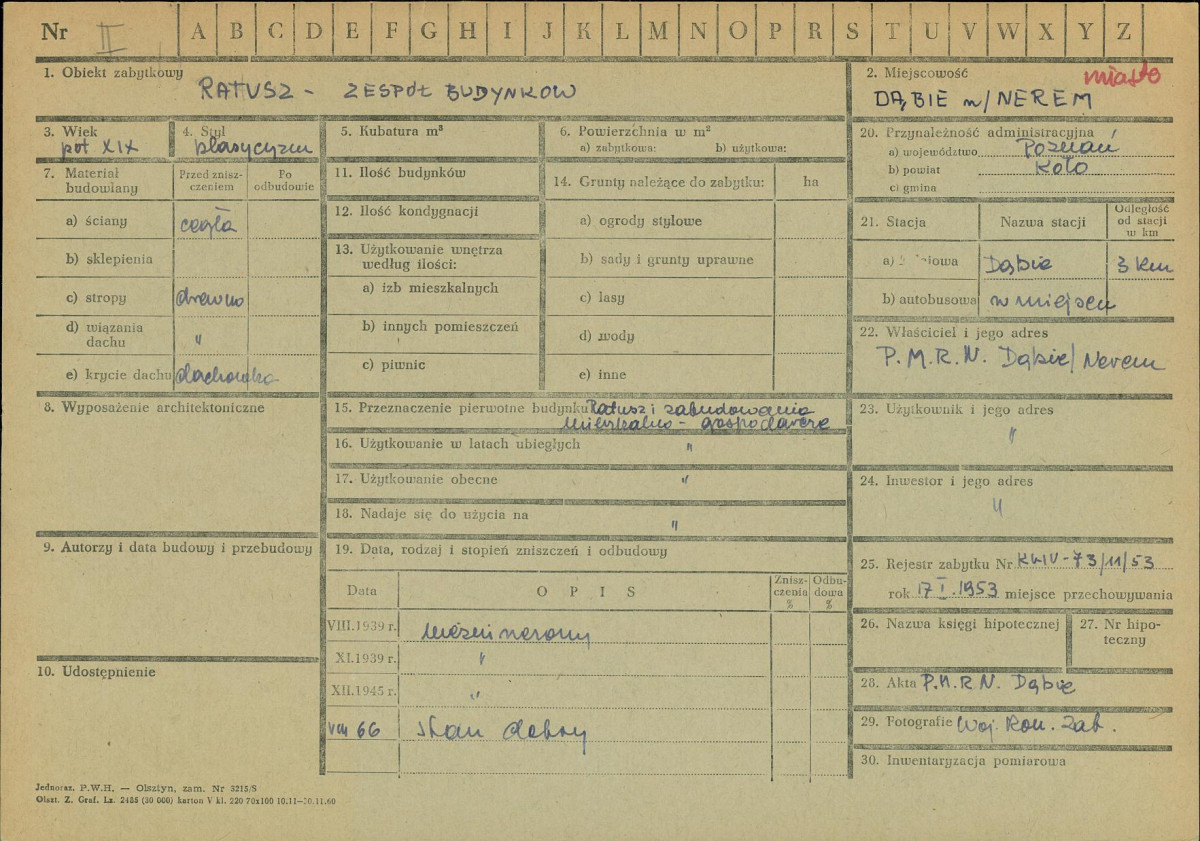 Nr II A B C D E F G H I J K L M N O P R S T U V W X Y Z
1. Obiekt zabytkowy
RATUSZ - ZESPÓŁ BUDYNKÓW
2. Miejscowość miasto
DĄBIE n/NEREM
3. Wiek
poł XIX
4. Styl
klasycyzm
5. Kubatura m³
6. Powierzchnia w m²
a) zabytkowa: b) użytkowa:
20. Przynależność administracyjna
a) województwo Poznań
b) powiat Koło
c) gmina
7. Materiał budowlany
Przed zniszczeniem
Po odbudowie
a) ściany cegła
b) sklepienia
c) stropy drewno
d) wiązania dachu "
e) krycie dachu dachówka
11. Ilość budynków
12. Ilość kondygnacji
13. Użytkowanie wnętrza według ilości:
a) izb mieszkalnych
b) innych pomieszczeń
c) piwnic
14. Grunty należące do zabytku: ha
a) ogrody stylowe
b) sady i grunty uprawne
c) lasy
d) wody
e) inne
21. Stacja
Nazwa stacji
Odległość od stacji w km
a) Dąbie 3 km
b) autobusowa w miejscu
22. Właściciel i jego adres
P.M.R.N. Dąbie/Nerem
8. Wyposażenie architektoniczne
15. Przeznaczenie pierwotne budynku Ratusz i zabudowania
mieszkalno - gospodarcze
16. Użytkowanie w latach ubiegłych "
17. Użytkowanie obecne "
18. Nadaje się do użycia na "
23. Użytkownik i jego adres
"
24. Inwestor i jego adres
"
9. Autorzy i data budowy i przebudowy
19. Data, rodzaj i stopień zniszczeń i odbudowy
Data OPIS Zniszczenia % Odbudowa %
VIII.1939 r.
XI.1939 r. "
XII.1945 r. "
VIII 66 stan dobry
25. Rejestr zabytku Nr KLIV-73/11/53
rok 17 I.1953 miejsce przechowywania
26. Nazwa księgi hipotecznej
27. Nr hipoteczny
10. Udostępnienie
28. Akta P.M.R.N. Dąbie
29. Fotografie Woj. Kon. Zab.
30. Inwentaryzacja pomiarowa
Jednoraz. P.W.H. — Olsztyn, zam. Nr 3215/S
Olszt. Z. Graf. Lz. 2485 (30 000) karton V kl. 220 70x100 10.11—30.11.60